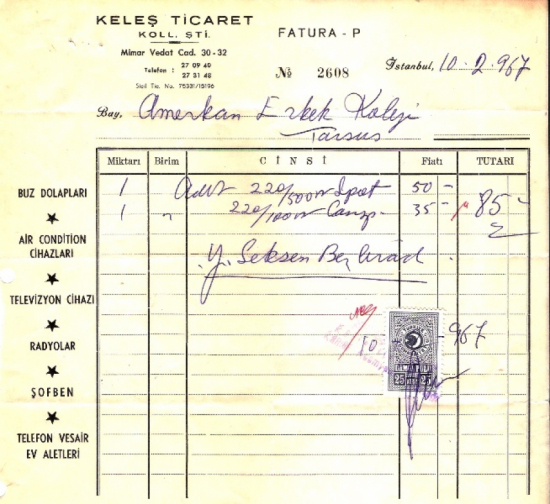 KELEŞ TİCARET
KOLL. ŞTİ.
Mimar Vedat Cad. 30-32
Telefon : 27 09 40
27 31 48
Sicil Tic. No. 75331/15196
FATURA - P
№ 2608
İstanbul, 10.2.967
Bay, Amerkan Erkek Koleji
Tarsus
Miktarı Birim CİNSİ Fiatı TUTARI
1 Adet 220/500W Spot 50 -
1 " 220/100W 35 - 85 -
Y. Seksen Beş lirad .
BUZ DOLAPLARI
AIR CONDITION
CİHAZLARI
TELEVİZYON CİHAZI
RADYOLAR
ŞOFBEN
TELEFON VESAİR
EV ALETLERİ
10 967
25 25